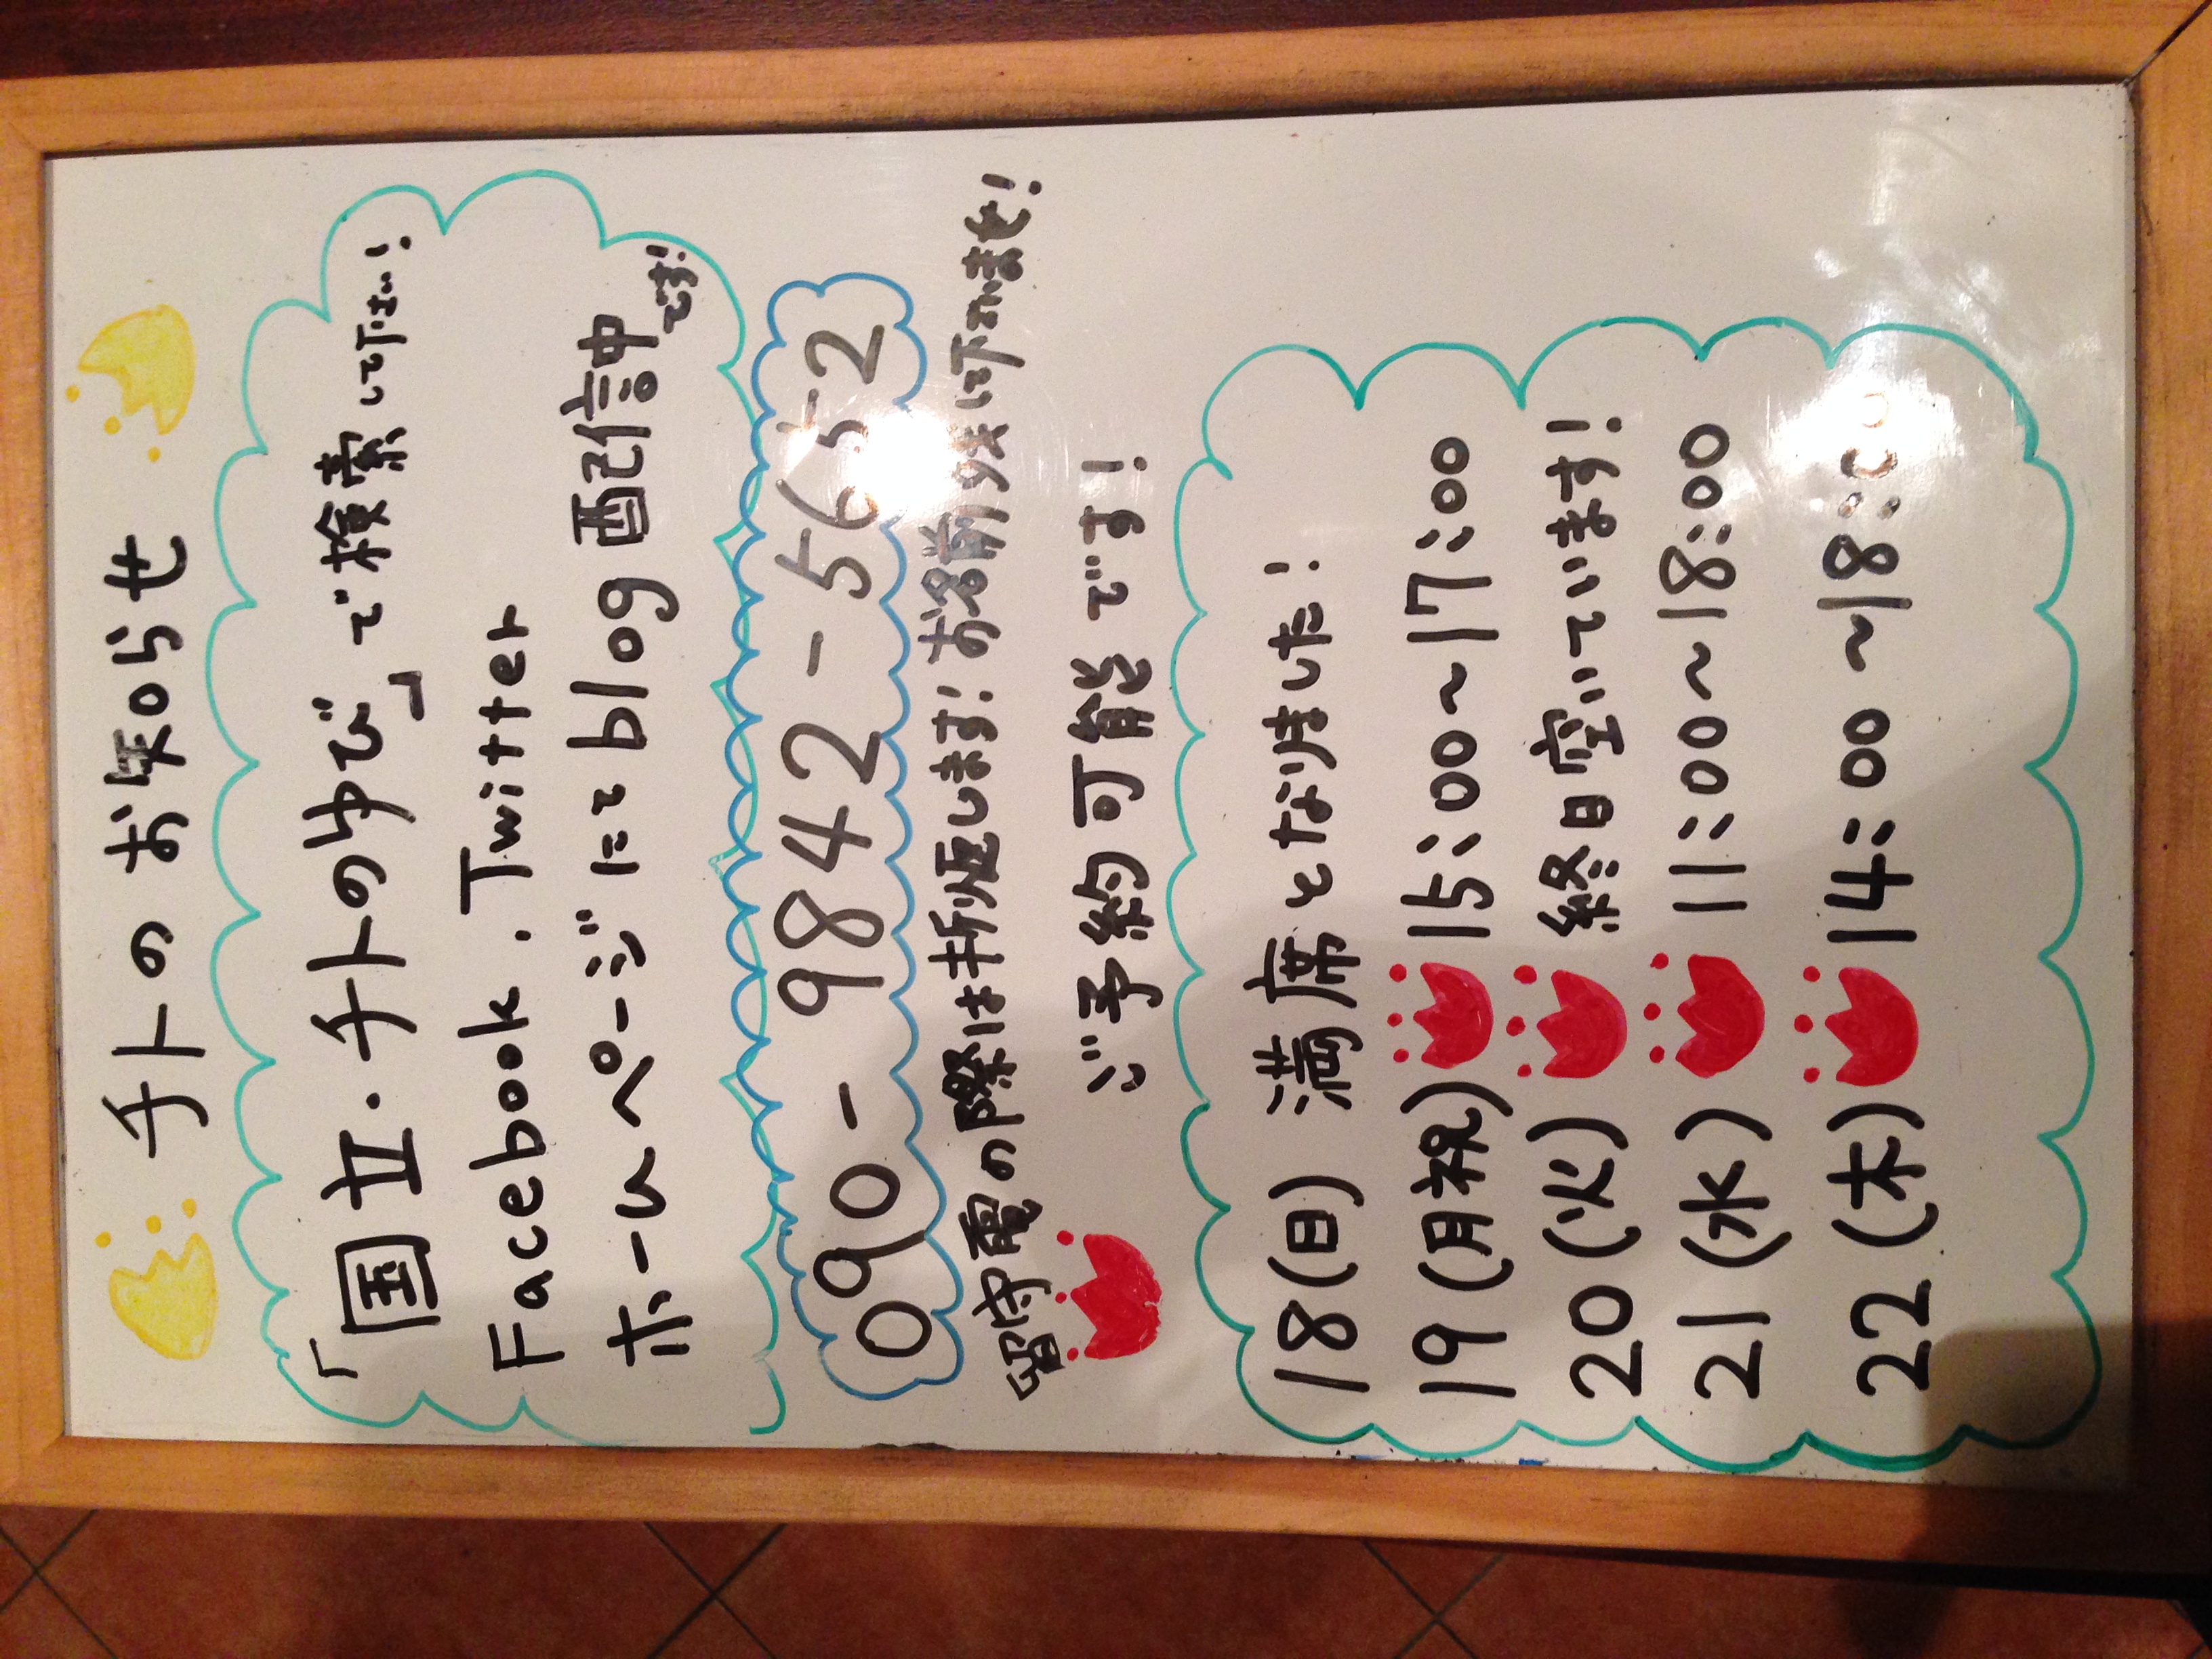 チトの お知らせ
「国立・チトのゆび」で検索して下さい!
Facebook.Twitter
ホームページにてblog配信中です!
090-9842-5652
留守電の際は折り返します!お名前
ご予約可能です!
18(日) 満席となりました!
19(月祝) 15:00~17:00
20(火) 終日空いています!
21(水) 11:00~18:00
22(木) 14:00~18:00